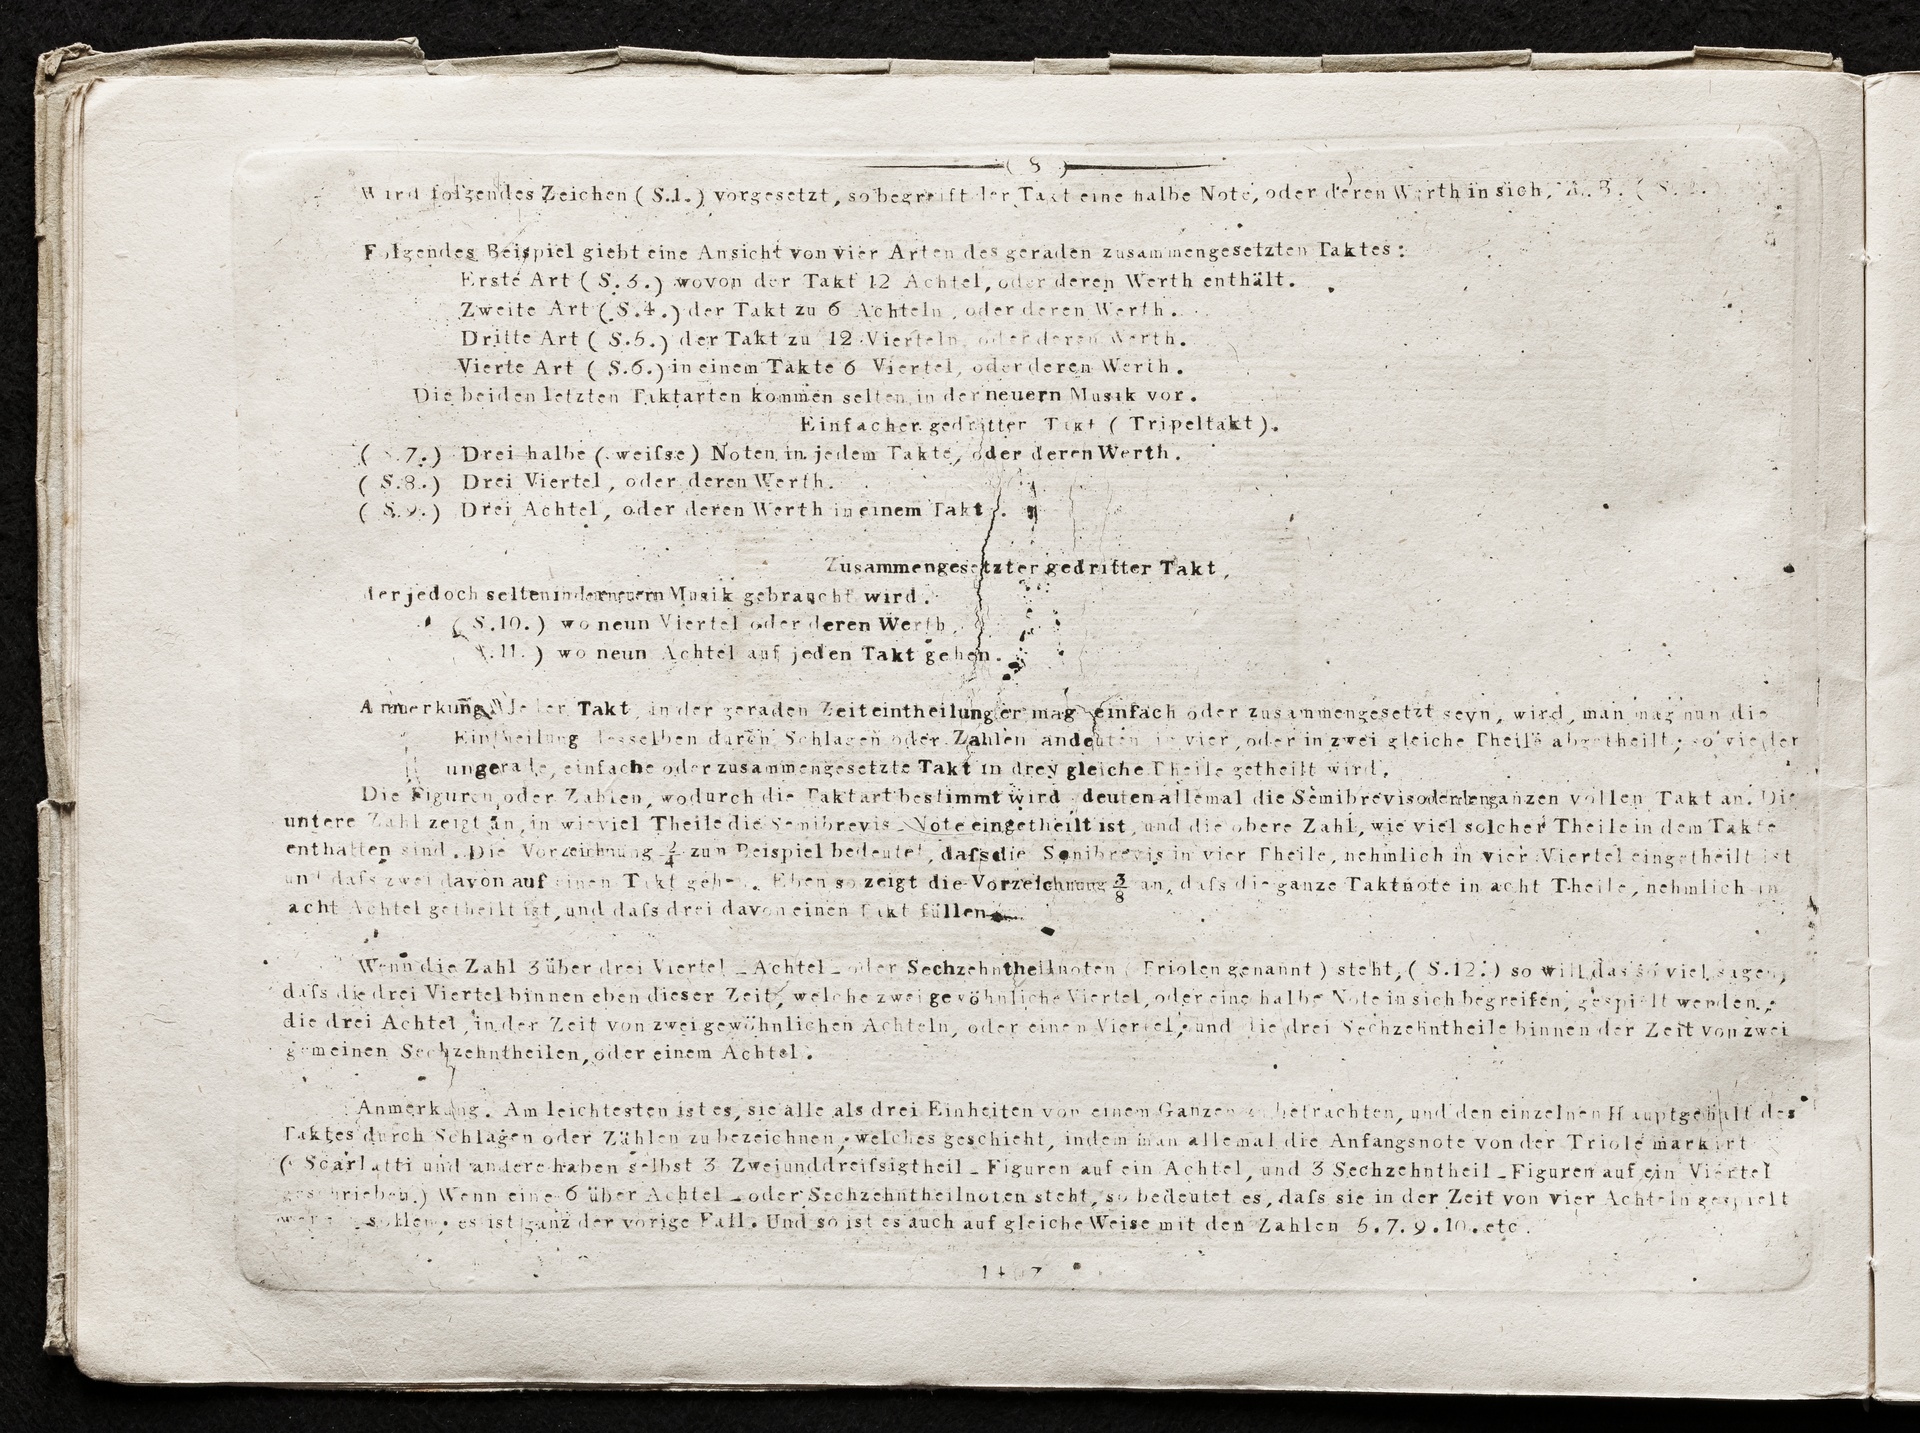 ( 8 )
Wird folgendes Zeichen ( S.1. ) vorgesetzt, so begreift der Takt eine halbe Note, oder deren Werth in sich, z. B. ( S. 2.
Folgendes Beispiel giebt eine Ansicht von vier Arten des geraden zusammengesetzten Taktes :
Erste Art ( S. 3. ) wovon der Takt 12 Achtel, oder deren Werth enthält.
Zweite Art ( S. 4. ) der Takt zu 6 Achteln, oder deren Werth.
Dritte Art ( S. 5. ) der Takt zu 12 Vierteln, oder deren Werth.
Vierte Art ( S. 6. ) in einem Takte 6 Viertel, oder deren Werth.
Die beiden letzten Taktarten kommen selten in der neuern Musik vor.
Einfacher gedritter Takt ( Tripeltakt ).
( S.7. ) Drei halbe ( weifse ) Noten in jedem Takte, oder deren Werth.
( S.8. ) Drei Viertel, oder deren Werth.
( S.9. ) Drei Achtel, oder deren Werth in einem Takt.
Zusammengesetzter gedritter Takt,
der jedoch selten in der neuern Musik gebraucht wird.
( S.10. ) wo neun Viertel oder deren Werth,
( S.11. ) wo neun Achtel auf jeden Takt gehen.
Anmerkung. Jeder Takt, in der geraden Zeiteintheilung er mag einfach oder zusammengesetzt seyn, wird, man mag nun die
Eintheilung desselben durch Schlagen oder Zahlen andeuten in vier, oder in zwei gleiche Theile abgetheilt ; so wie der
ungerade, einfache oder zusammengesetzte Takt in drey gleiche Theile getheilt wird.
Die Figuren oder Zahlen, wodurch die Taktart bestimmt wird deuten allemal die Semibrevis oder den ganzen vollen Takt an. Die
untere Zahl zeigt an, in wie viel Theile die Semibrevis - Note eingetheilt ist, und die obere Zahl, wie viel solcher Theile in dem Takte
enthalten sind. Die Vorzeichnung 2/4 zum Beispiel bedeutet, dafs die Semibrevis in vier Theile, nehmlich in vier Viertel eingetheilt ist
und dafs zwei davon auf einen Takt gehen. Eben so zeigt die Vorzeichnung 3/8 an, dafs die ganze Taktnote in acht Theile, nehmlich in
acht Achtel getheilt ist, und dafs drei davon einen Takt füllen
Wenn die Zahl 3 über drei Viertel - Achtel - oder Sechzehntheilnoten ( Triolen genannt ) steht, ( S.12. ) so will das so viel sagen,
dafs die drei Viertel binnen eben dieser Zeit, welche zwei gewöhnliche Viertel, oder eine halbe Note in sich begreifen, gespielt werden ;
die drei Achtel, in der Zeit von zwei gewöhnlichen Achteln, oder einen Viertel ; und die drei Sechzehntheile binnen der Zeit von zwei
gemeinen Sechzehntheilen, oder einem Achtel.
Anmerkung. Am leichtesten ist es, sie alle als drei Einheiten von einem Ganzen zu betrachten, und den einzelnen Hauptgehalt des
Taktes durch Schlagen oder Zählen zu bezeichnen, welches geschieht, indem man allemal die Anfangsnote von der Triole markirt
( Scarlatti und andere haben selbst 3 Zweiunddreifsigtheil - Figuren auf ein Achtel, und 3 Sechzehntheil - Figuren auf ein Viertel
geschrieben. ) Wenn eine 6 über Achtel - oder Sechzehntheilnoten steht, so bedeutet es, dafs sie in der Zeit von vier Achteln gespielt
werden sollen ; es ist ganz der vorige Fall. Und so ist es auch auf gleiche Weise mit den Zahlen 5. 7. 9. 10. etc.